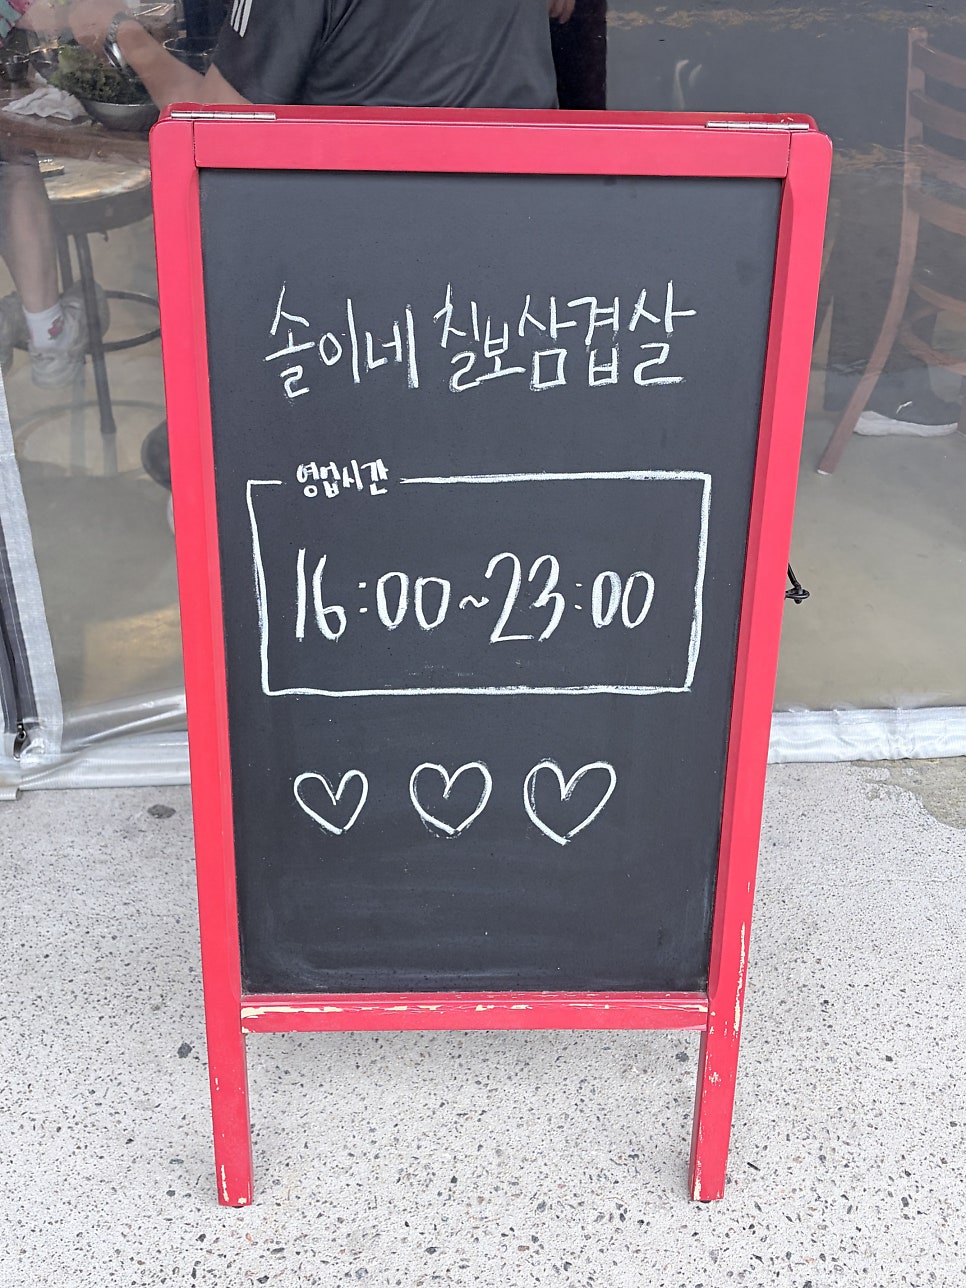 솔이네 칠보삼겹살
영업시간
16:00~23:00